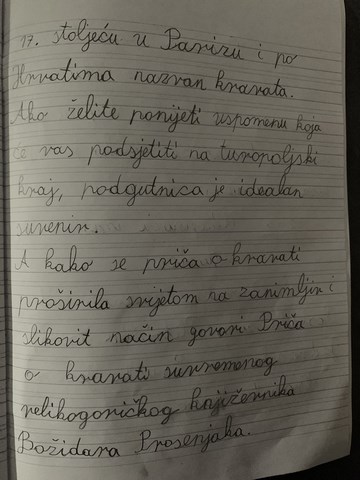 17. stoljeću u Parizu i po
Hrvatima nazvan kravata.
Ako želite ponijeti uspomenu koja
će vas podsjetiti na turopoljski
kraj, podgutnica je idealan
suvenir.
A kako se priča o kravati
proširila svijetom na zanimljiv i
slikovit način govori Priča
o kravati suvremenog
velikogoričkog književnika
Božidara Prosenjaka.